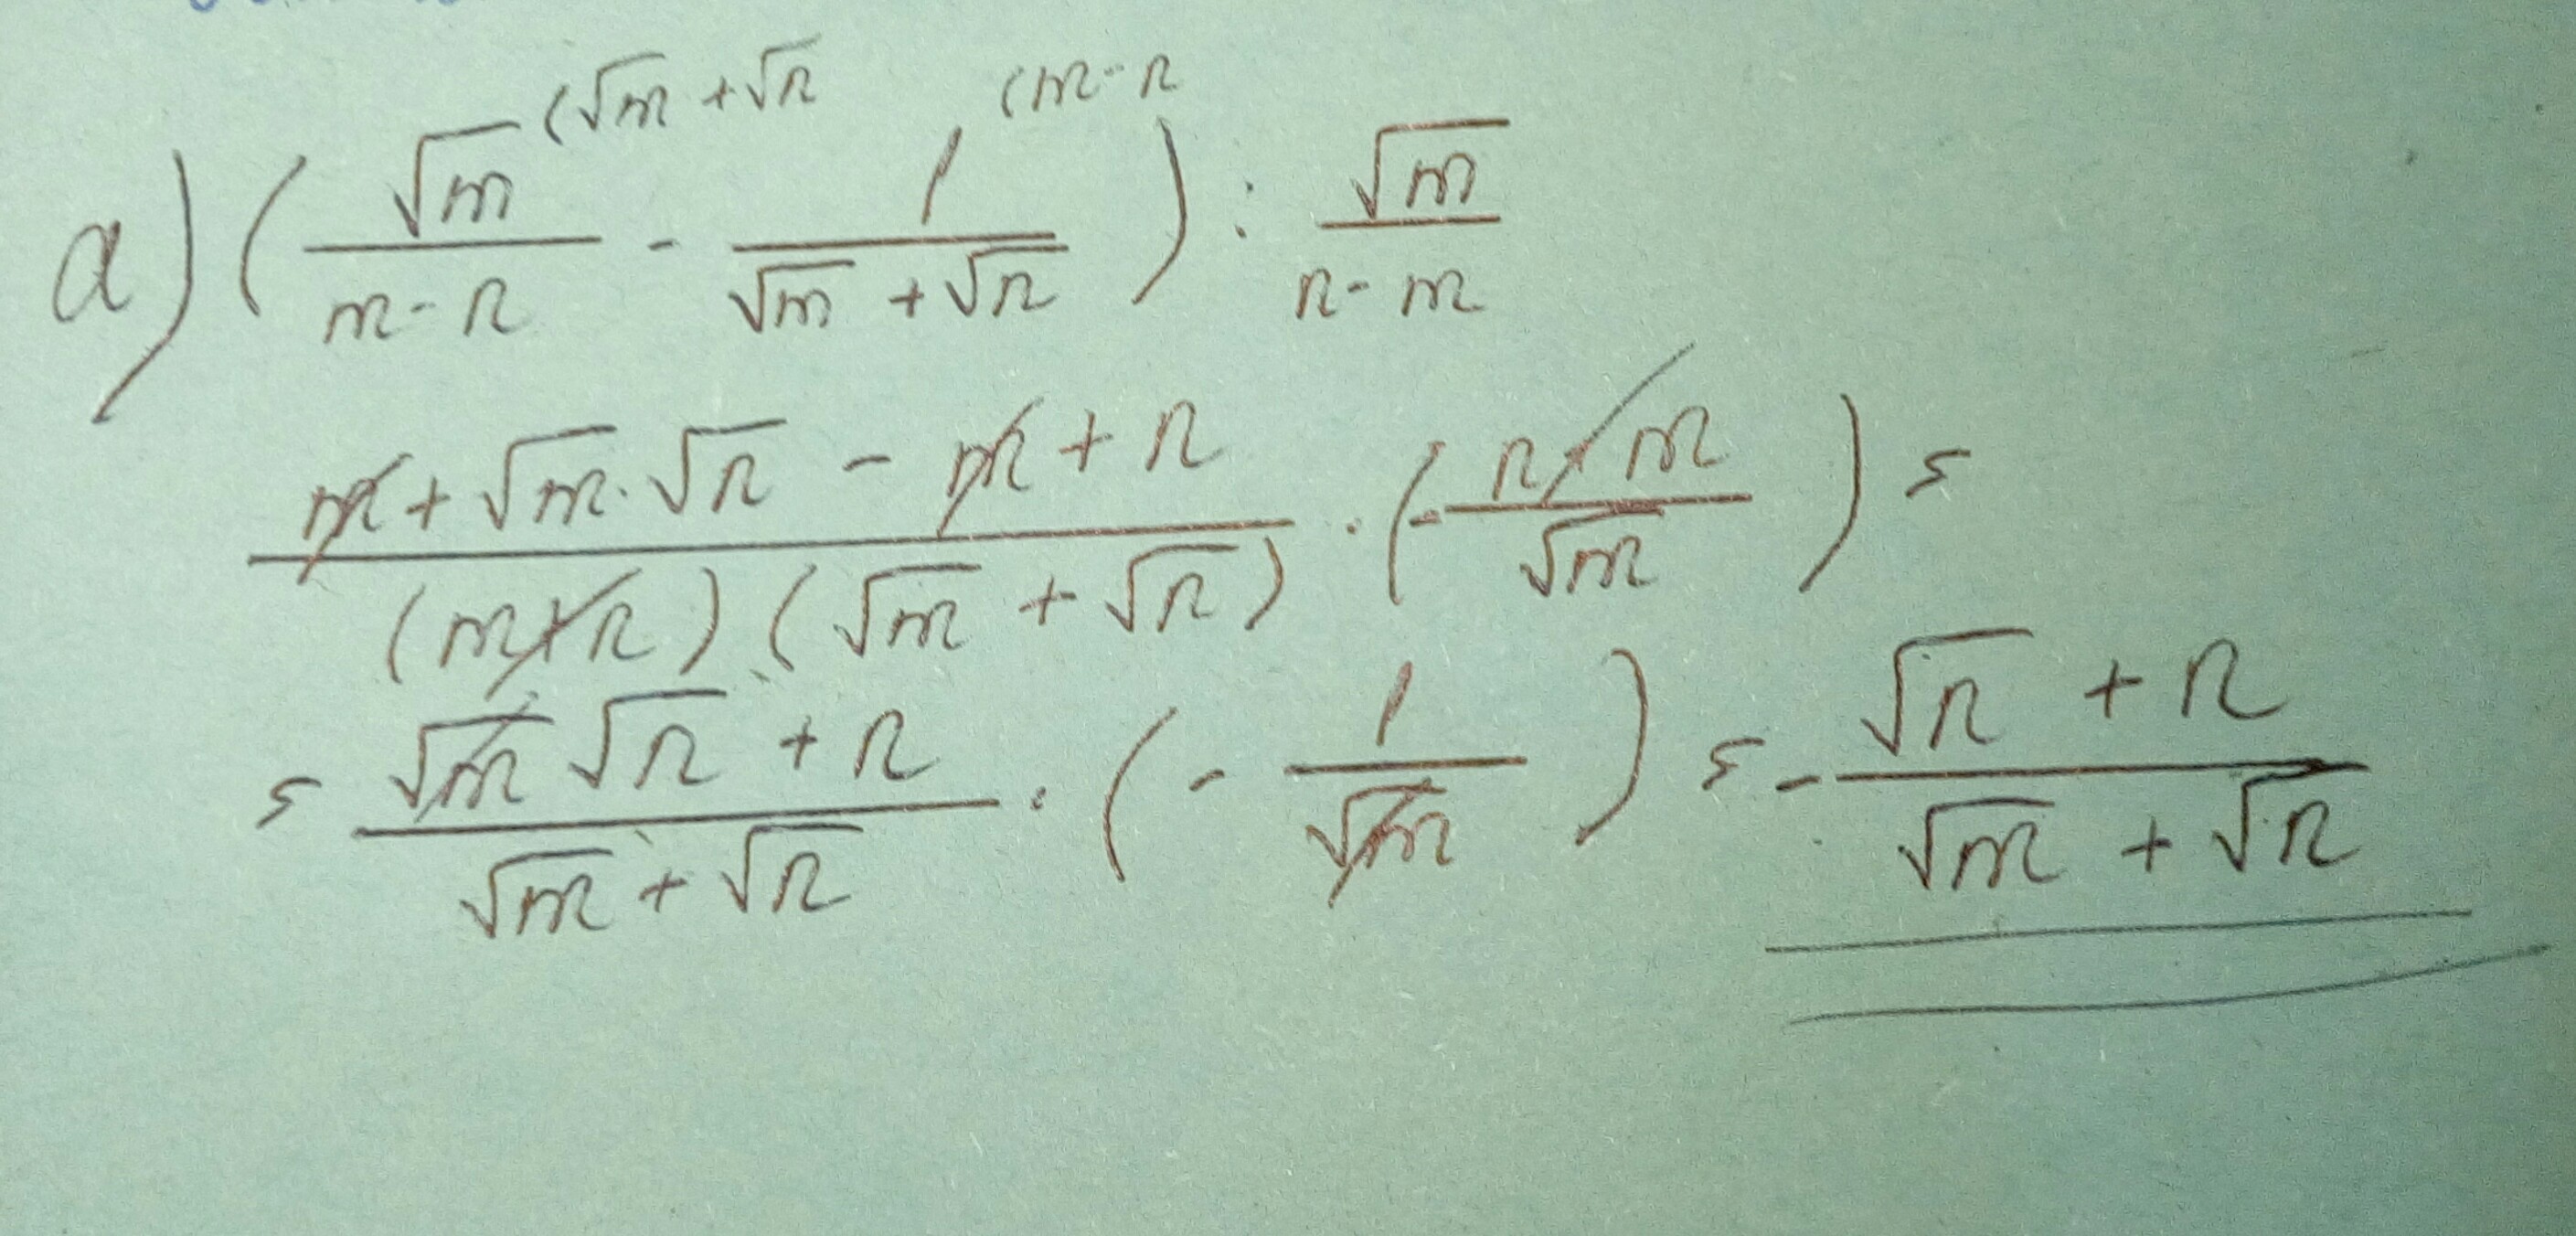 a) (√m/(m-n) (√m+√n - 1/(√m+√n) (m-n) : √m/(n-m)
(m+√m·√n-m+n)/((m-n)(√m+√n)) · (-(n-m)/√m) =
= (√m√n+n)/(√m+√n) · (-1/√m) = -(√n+n)/(√m+√n)